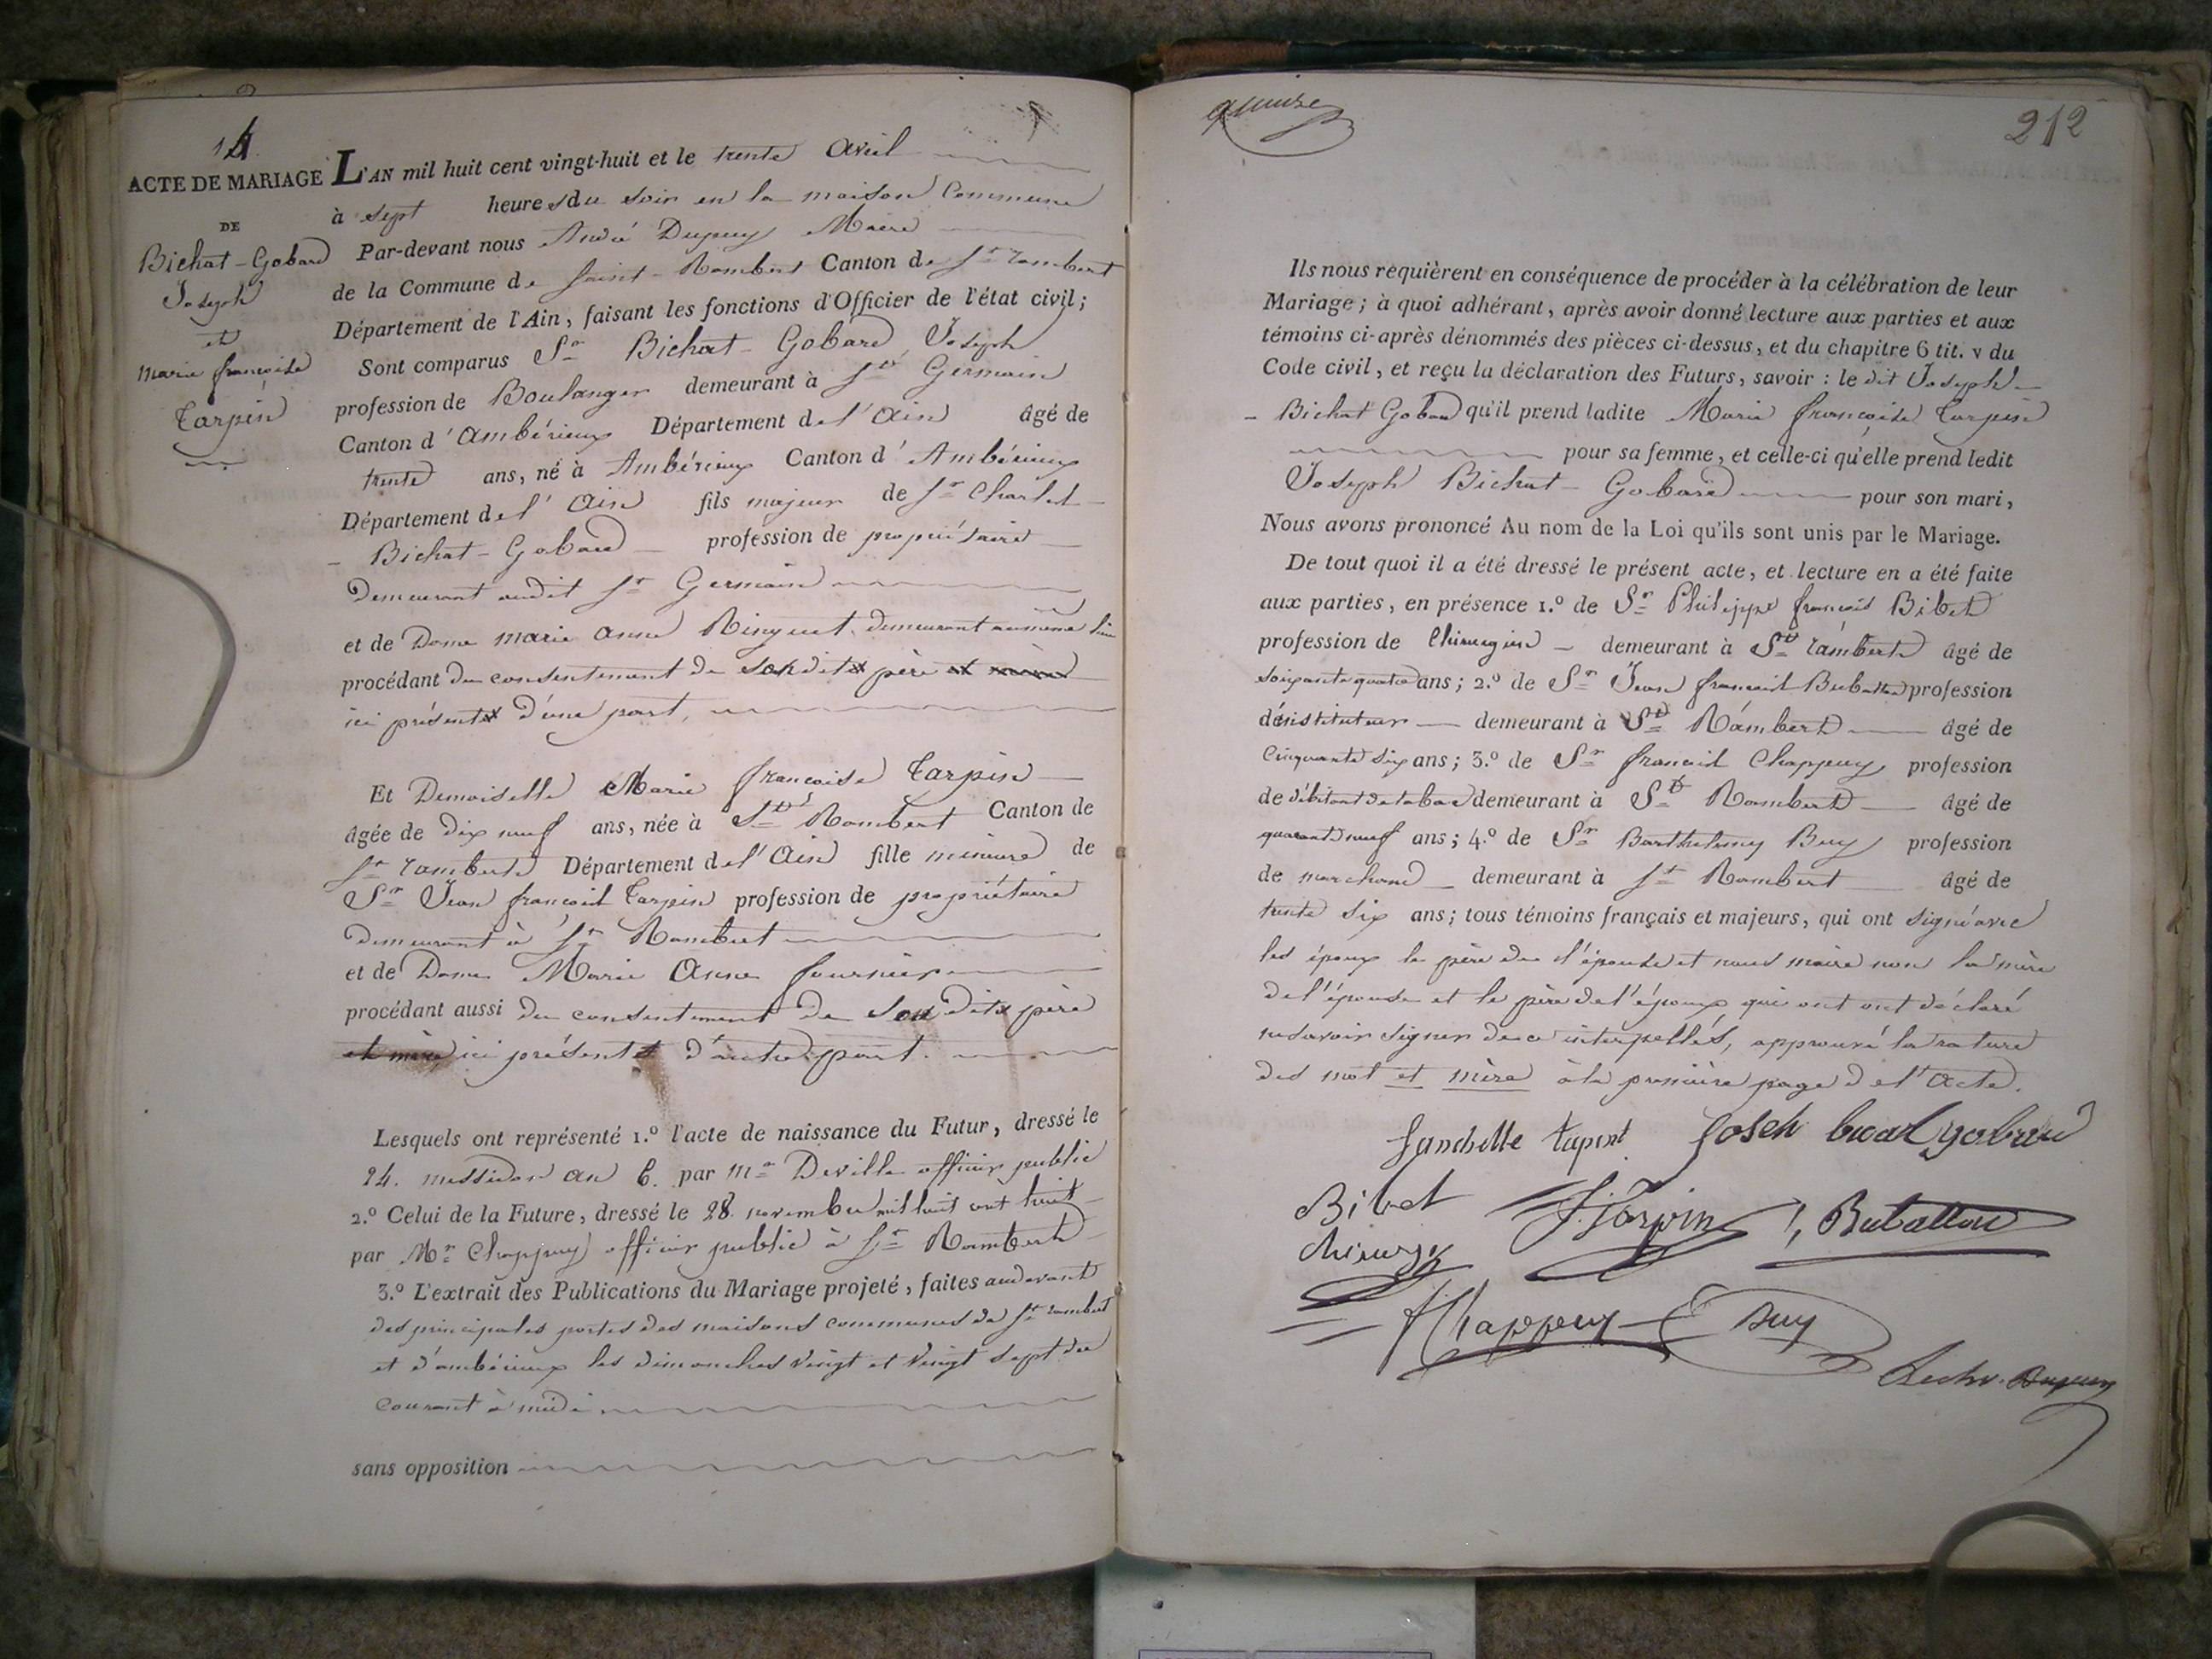 14.
ACTE DE MARIAGE
DE
Bichat-Gobard
Joseph
et
marie françoise
Tarpin
L'AN mil huit cent vingt-huit et le trente avril
à sept heures du soir en la maison Commune
Par-devant nous André Dupuy Maire
de la Commune de Saint-Rambert Canton de St rambert
Département de l'Ain, faisant les fonctions d'Officier de l'état civil;
Sont comparus Sr Bichat-Gobard Joseph
profession de Boulanger demeurant à St Germain
Canton d'Ambérieux Département de l'Ain âgé de
trente ans, né à Ambérieux Canton d'Ambérieux
Département de l'Ain fils majeur de Sr Charles
Bichat-Gobard profession de propriétaire
Demeurant audit St Germain
et de Dame marie anne Ringuet demeurant au même lieu
procédant du consentement de sondit père et mère
ici présent d'une part,
Et Demoiselle Marie françoise Tarpin
âgée de dix neuf ans, née à St Rambert Canton de
St rambert Département de l'Ain fille mineure de
Sr Jean françois Tarpin profession de propriétaire
demeurant à St Rambert
et de Dame Marie Anne fournier
procédant aussi du consentement de sondit père
et mère ici présent d'autre part.
Lesquels ont représenté 1.º l'acte de naissance du Futur, dressé le
24. messidor an 6. par Mr Deville officier public
2.º Celui de la Future, dressé le 28 novembre mil huit cent huit
par Mr Chappuy officier public à St Rambert
3.º L'extrait des Publications du Mariage projeté, faites audevant
des principales portes des maisons communes de St rambert
et d'ambérieux les dimanches vingt et vingt sept du
courant à midi
sans opposition
quinze
212
Ils nous requièrent en conséquence de procéder à la célébration de leur
Mariage; à quoi adhérant, après avoir donné lecture aux parties et aux
témoins ci-après dénommés des pièces ci-dessus, et du chapitre 6 tit. v du
Code civil, et reçu la déclaration des Futurs, savoir : le dit Joseph
Bichat Gobard qu'il prend ladite Marie françoise Tarpin
pour sa femme, et celle-ci qu'elle prend ledit
Joseph Bichat-Gobard pour son mari,
Nous avons prononcé Au nom de la Loi qu'ils sont unis par le Mariage.
De tout quoi il a été dressé le présent acte, et lecture en a été faite
aux parties, en présence 1.º de Sr Philippe françois Bibet
profession de Chirurgien demeurant à St rambert âgé de
soixante quatre ans; 2.º de Sr Jean françois profession
d'instituteur demeurant à St Rambert âgé de
Cinquante six ans; 3.º de Sr françois Chappuy profession
de débitant de tabac demeurant à St Rambert âgé de
quarante neuf ans; 4.º de Sr Barthelemy Buy profession
de marchand demeurant à St Rambert âgé de
trente six ans; tous témoins français et majeurs, qui ont signé avec
les époux le père de l'épouse et nous maire non la mère
de l'épouse et le père de l'époux, qui ont ont déclaré
ne savoir signer de ce interpellés, approuvé la rature
des mot et mère à la première page de l'acte.
fanchette tapint Joseh bicat gobard
Bibet
chirurg
J. Tarpin
Chappuy
Buy
Dupuy